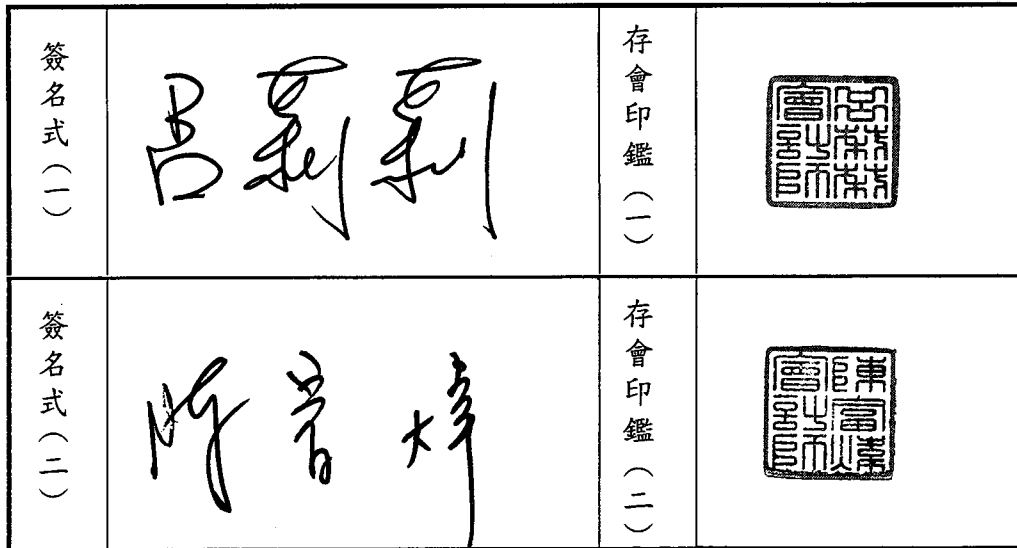 簽名式(一)
呂莉莉
存會印鑑(一)
呂莉莉會計師
簽名式(二)
陳富煒
存會印鑑(二)
陳富煒會計師